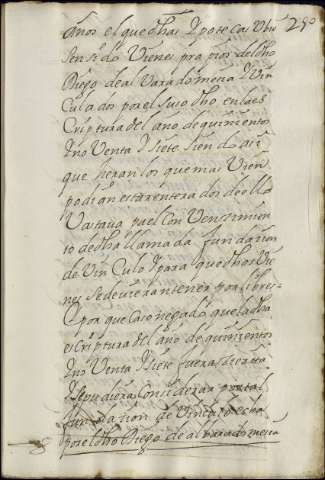 250
años el que dha Ypoteca
siendo Vienes propios del dho
Diego de aluarado mesia Y Vin
Culados por el suso dho en la es
Criptura del año de quinientos
Y no Venta Y siete siendo asi
que heran los que mas Vien
podian estar entera dos de ello
Vastaua pa el Con Vensimien
to de dha llamada fundasion
de Vin Culo Y para que dhos Vie
nes se deuieran tener por libres
C por que caso negado que la dha
escriptura del año de quinientos
Y no Venta Y siete fuera sierta
Y se pudiera Considerar por tal
fundasion de Vinculo echa
por el dho Diego de albarado mesia